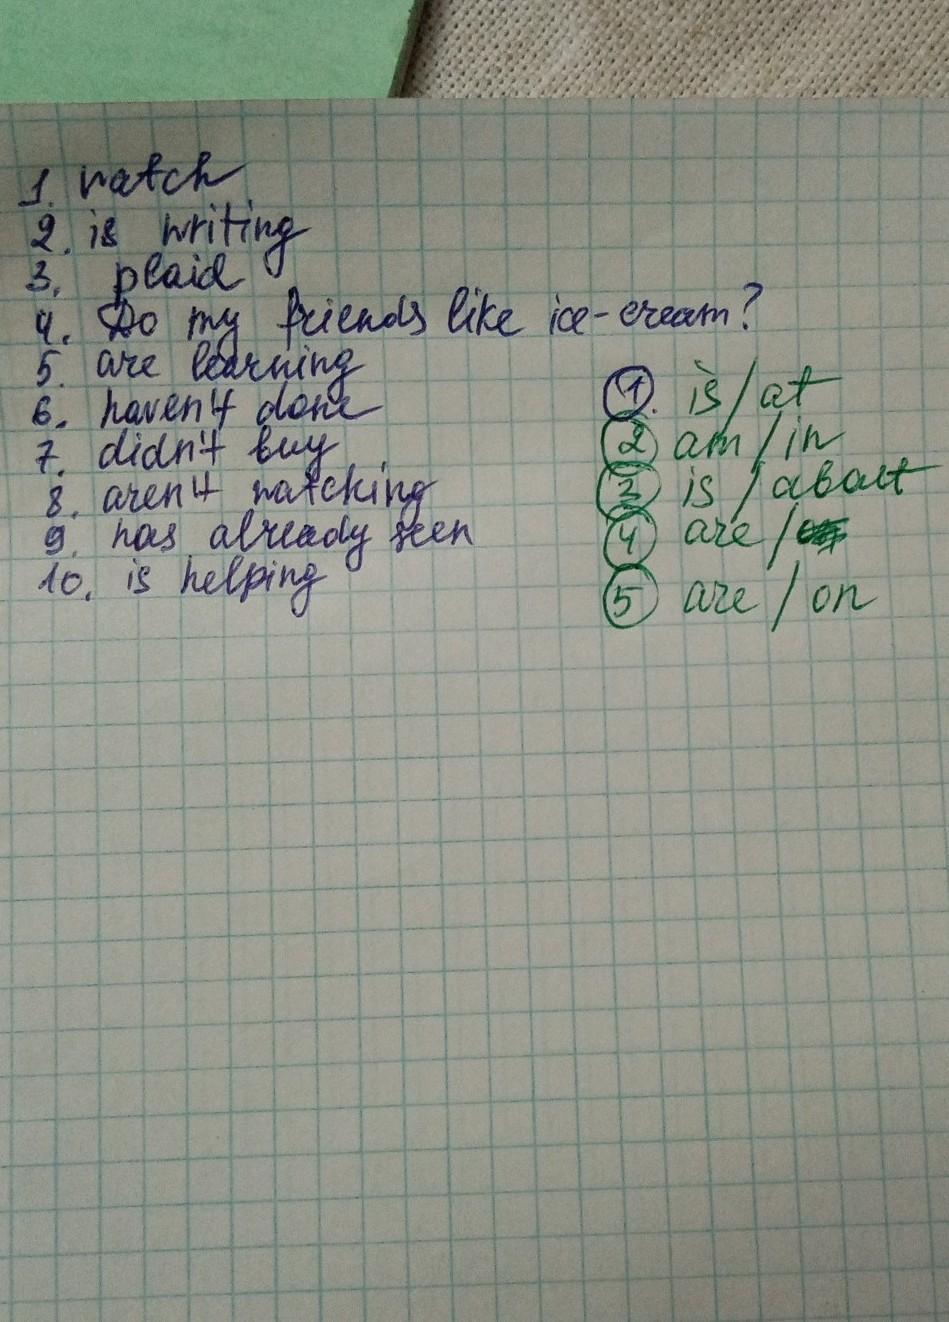 1. watch
2. is writing
3. plaid
4. Do my friends like ice-cream?
5. are learning
6. haven't done
7. didn't buy
8. aren't watching
9. has already seen
10. is helping
1. is/at
2 am/in
3 is/about
4 are/
5 are/on